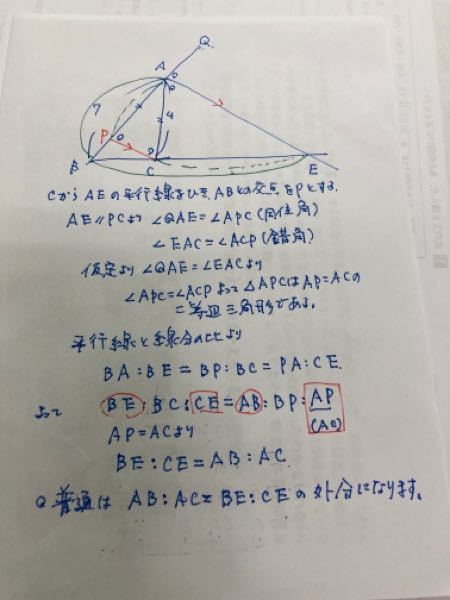 Q
A
7
4
P
B
C
E
CからAEの平行線をひき、ABとの交点をPとする。
AE∥PCより ∠QAE=∠APC(同位角)
∠EAC=∠ACP(錯角)
仮定より ∠QAE=∠EACより
∠APC=∠ACP よって △APCはAP=ACの
二等辺三角形である。
平行線と線分の比より
BA:BE=BP:BC=PA:CE.
よって BE:BC:CE=AB:BP:AP
(AC)
AP=ACより
BE:CE=AB:AC.
普通は AB:AC=BE:CEの外分になります。